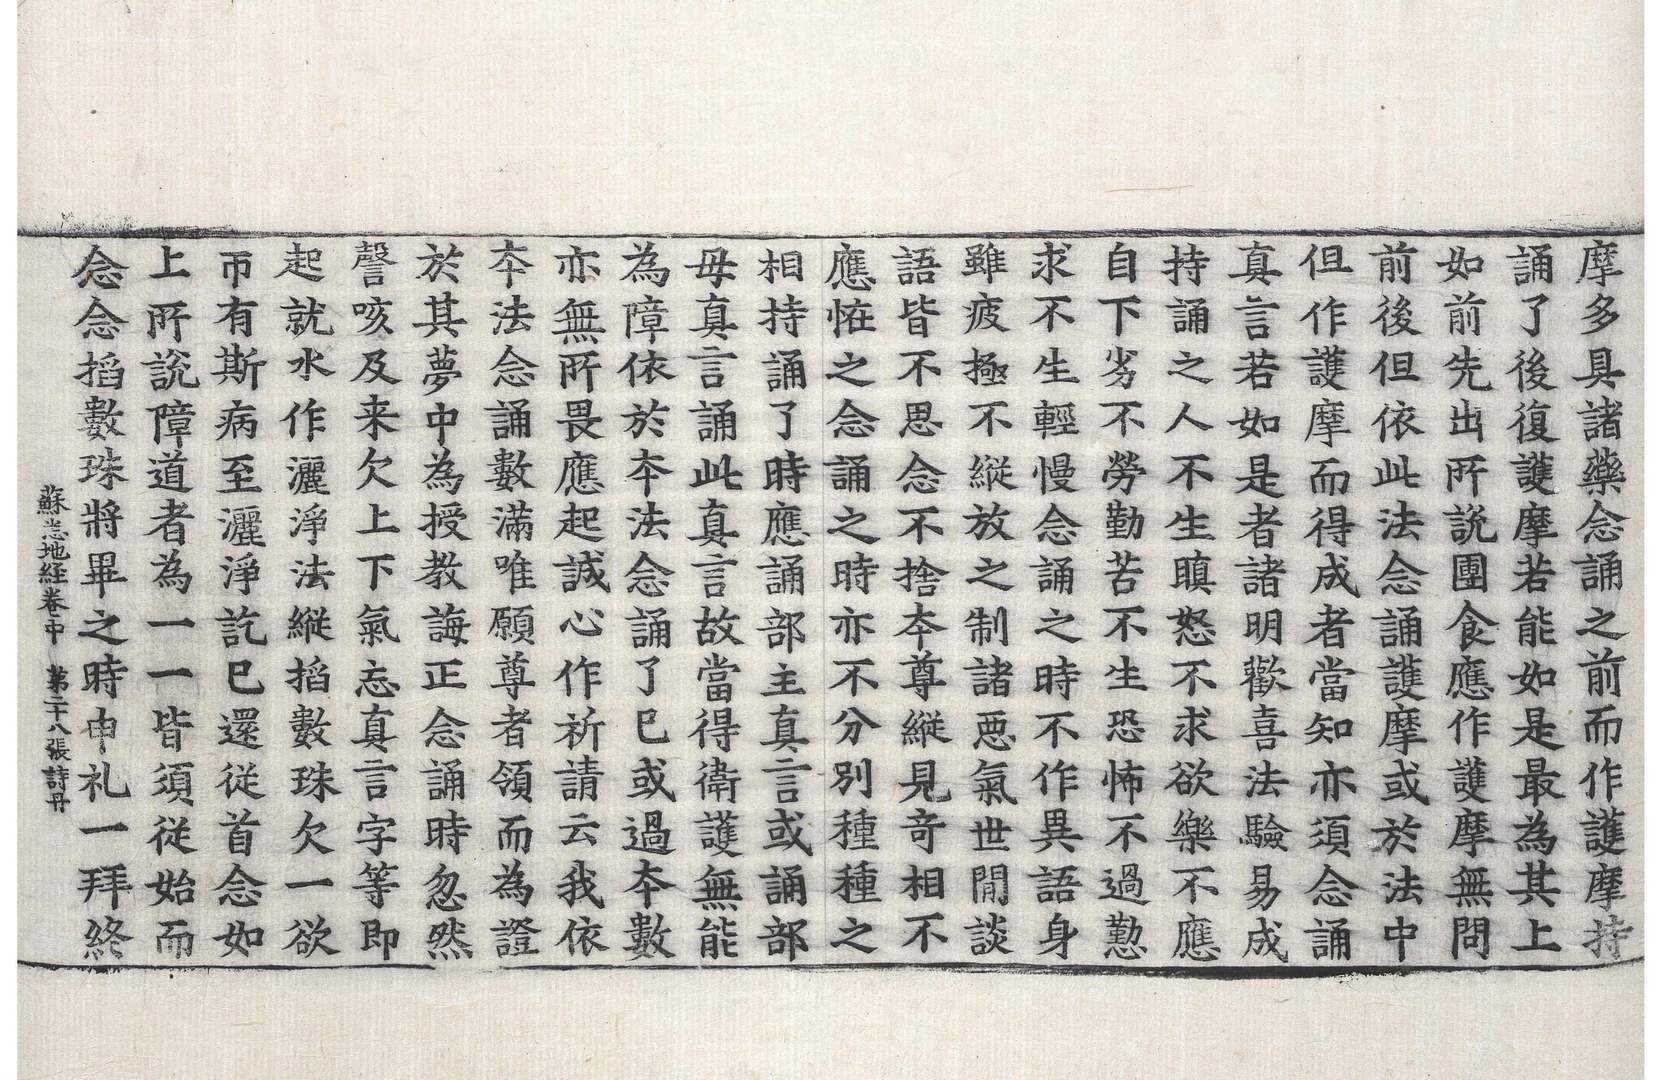 摩多具諸藥念誦之前而作護摩持
誦了後復護摩若能如是最為其上
如前先出所說團食應作護摩無問
前後但依此法念誦護摩或於法中
但作護摩而得成者當知亦須念誦
真言若如是者諸明歡喜法驗易成
持誦之人不生瞋怒不求欲樂不應
自下劣不勞勤苦不生恐怖不過懃
求不生輕慢念誦之時不作異語身
雖疲極不縱放之制諸惡氣世間談
語皆不思念不捨本尊縱見奇相不
應恠之念誦之時亦不分別種種之
相持誦了時應誦部主真言或誦部
母真言誦此真言故當得衛護無能
為障依於本法念誦了已或過本數
亦無所畏應起誠心作祈請云我依
本法念誦數滿唯願尊者領而為證
於其夢中為授教誨正念誦時忽然
謦咳及来欠上下氣忘真言字等即
起就水作灑淨法縱搯數珠欠一欲
帀有斯病至灑淨訖已還從首念如
上所說障道者為一一皆須從始而
念念搯數珠將畢之時申礼一拜終
蘇悉地経卷中 第二十八張 詩 丹